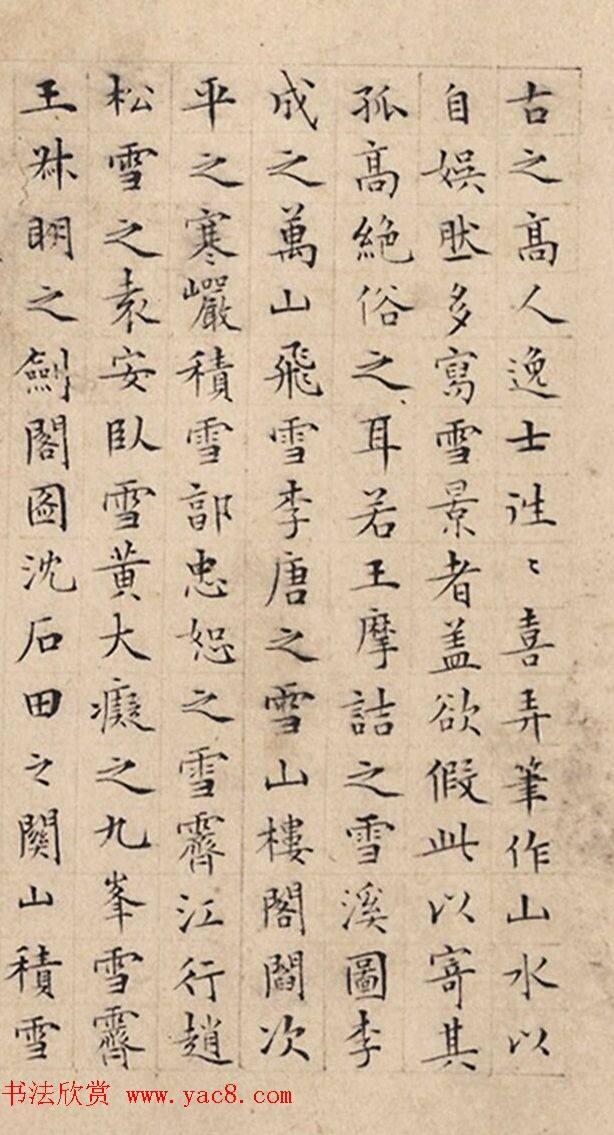 古之高人逸士往〻喜弄筆作山水以
自娱然多寫雪景者盖欲假此以寄其
孤高絶俗之耳若王摩詰之雪溪圖李
成之萬山飛雪李唐之雪山樓閣閻次
平之寒巖積雪郭忠恕之雪霽江行趙
松雪之袁安臥雪黄大癡之九峯雪霽
王叔明之劍閣圖沈石田之関山積雪
书法欣赏 www.yac8.com